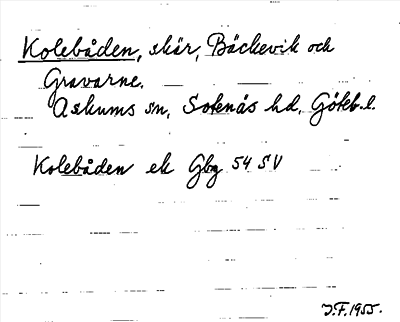 Kolebåden, skär, Bäckevik och
Gravarne.
Askums sn, Sotenäs hd, Göteb. l.
Kolebåden ek Gbg 54 SV
J.F. 1955.